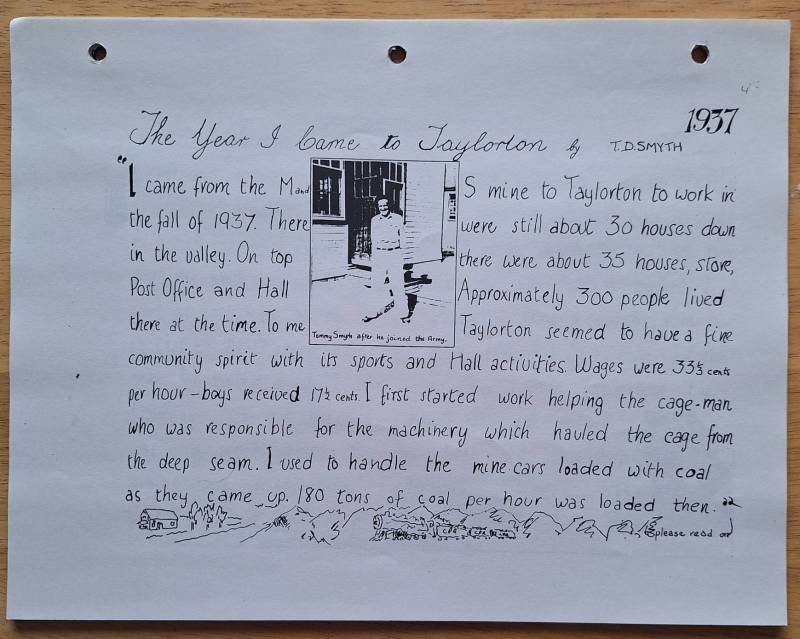 1937
The Year I Came to Taylorton by T.D. SMYTH
"I came from the M and S mine to Taylorton to work in
the fall of 1937. There were still about 30 houses down
in the valley. On top there were about 35 houses, store,
Post Office and Hall Approximately 300 people lived
there at the time. To me Taylorton seemed to have a fine
Tommy Smyth after he joined the Army.
community spirit with its sports and Hall activities. Wages were 33½ cents
per hour – boys received 17½ cents. I first started work helping the cage-man
who was responsible for the machinery which hauled the cage from
the deep seam. I used to handle the mine cars loaded with coal
as they came up. 180 tons of coal per hour was loaded then."
please read on